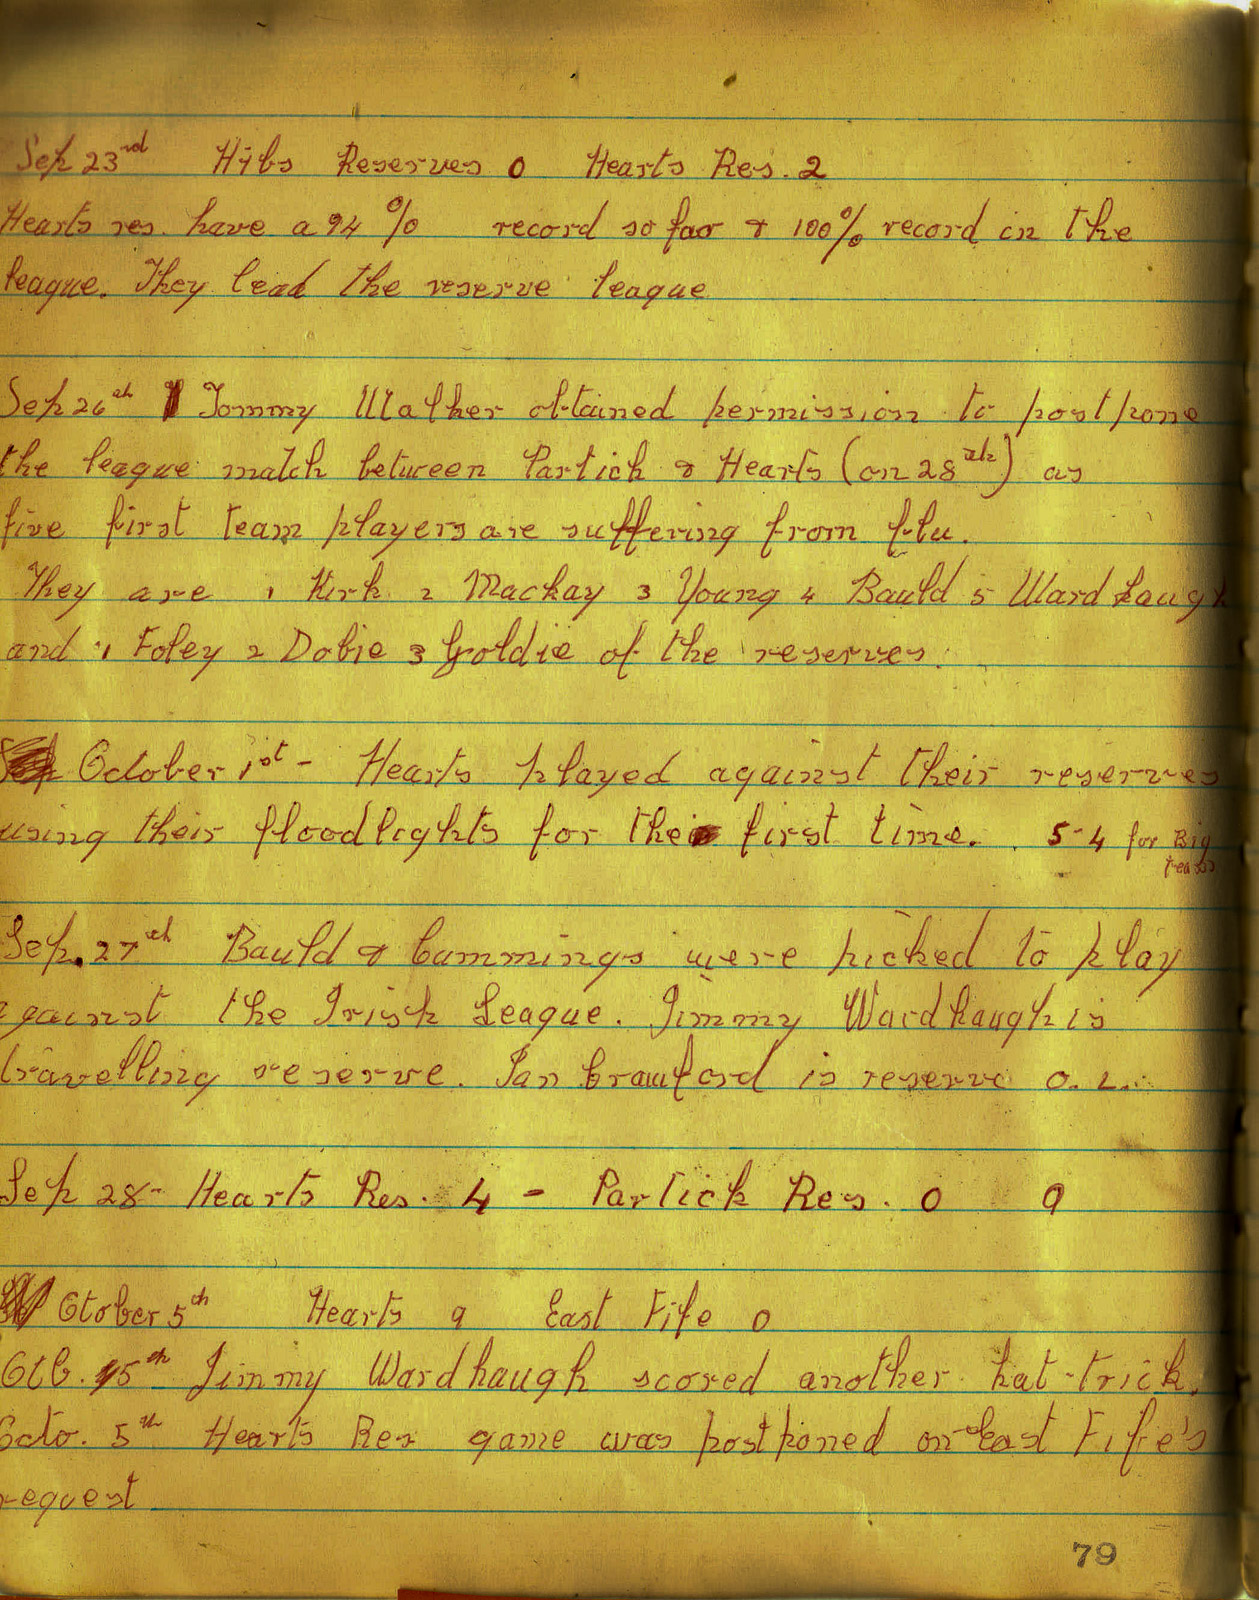 Sep 23rd Hibs Reserves 0 Hearts Res. 2
Hearts res. have a 94% record so far & 100% record in the
league. They lead the reserve league
Sep 26th Tommy Walker obtained permission to postpone
the league match between Partick & Hearts (on 28th) as
five first team players are suffering from flu.
They are 1 Kirk 2 Mackay 3 Young 4 Bauld 5 Wardhaugh
and 1 Foley 2 Dobie 3 Goldie of the reserves.
October 1st - Hearts played against their reserves
using their floodlights for the first time. 5-4 for Big
team
Sep. 27th Bauld & Cummings were picked to play
against the Irish League. Jimmy Wardhaugh is
travelling reserve. Ian Crawford is reserve O.L.
Sep 28 - Hearts Res. 4 - Partick Res. 0 9
October 5th Hearts 9 East Fife 0
Octo. 5th Jimmy Wardhaugh scored another hat-trick.
Octo. 5th Hearts Res game was postponed on East Fife's
request
79